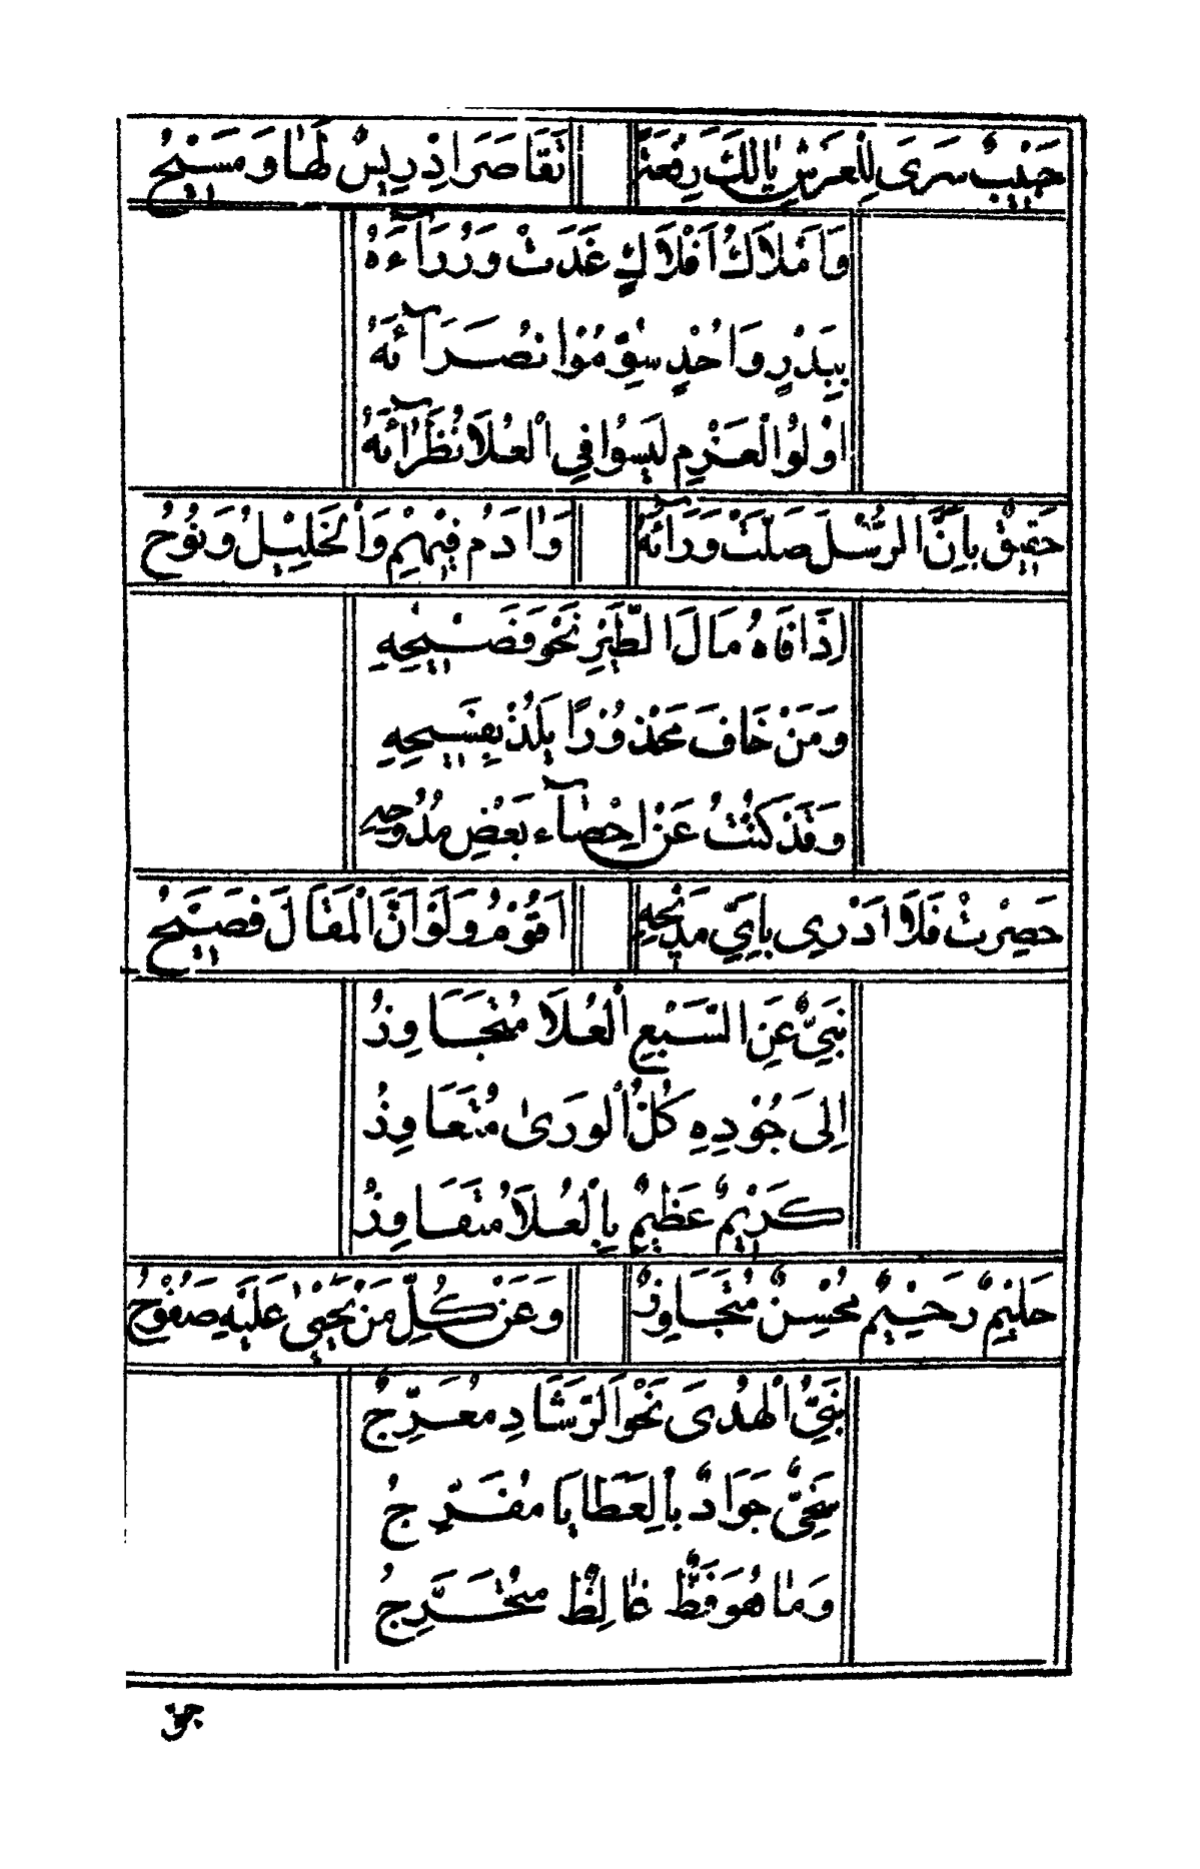 حَبِيْبٌ سَرَى لِلْعَرْشِ يَا لَكَ رِفْعَةً تَقَاصَرَ اِدْرِيسٌ لَهَا وَمَسِيْحُ
وَاَمْلَاكُ اَفْلَاكٍ غَدَتْ وَرُرَآءَهُ
بِبَدْرٍ وَاُحْدٍ سُوِّمُوْا نُصَرَآئَهُ
اُوْلُوا الْعَزْمِ لَيْسُوا فِي الْعُلَا نُظَرَآئَهُ
حَقِيْقٌ بِاَنَّ الرُّسْلَ صَلَّتْ وَرَآئَهُ وَاٰدَمُ فِيْهِمْ وَالْخَلِيْلُ وَنُوْحُ
اِذَا فَاهُ مَالَ الطَّيْرِ نَحْوَ فَصِيْحِهِ
وَمَنْ خَافَ مَحْذُوْرًا يَلُذْ بِفَسِيْحِهِ
وَقَدْ كَلَّتْ عَنْ اِحْصَآءِ بَعْضِ مُدُوْحِهِ
حَصِرْتُ فَلَا اَدْرِي بِاَيِّ مَدِيْحِهِ اَقُوْمُ وَلَوْ اَنَّ الْمَقَالَ فَصِيْحُ
نَبِيٌّ عَنِ السَّبْعِ الْعُلَا مُتَجَاوِزُ
اِلَى جُوْدِهِ كُلُّ الْوَرَىٰ مُتَعَاوِذُ
كَرِيْمٌ عَظِيْمٌ بِالْعُلَا مُتَفَاوِذُ
حَلِيْمٌ رَحِيْمٌ مُحْسِنٌ مُتَجَاوِزٌ وَعَنْ كُلِّ مَنْ يَجْنِىْ عَلَيْهِ صَفُوْحُ
نَبِيُّ الْهُدَى نَحْوَ الرَّشَادِ مُعَرِّجُ
سَخِيٌّ جَوَادٌ بِالْعَطَايَا مُفَرِّجُ
وَمَا هُوَ فَظٌّ غَالِظٌ مُتَحَرِّجُ